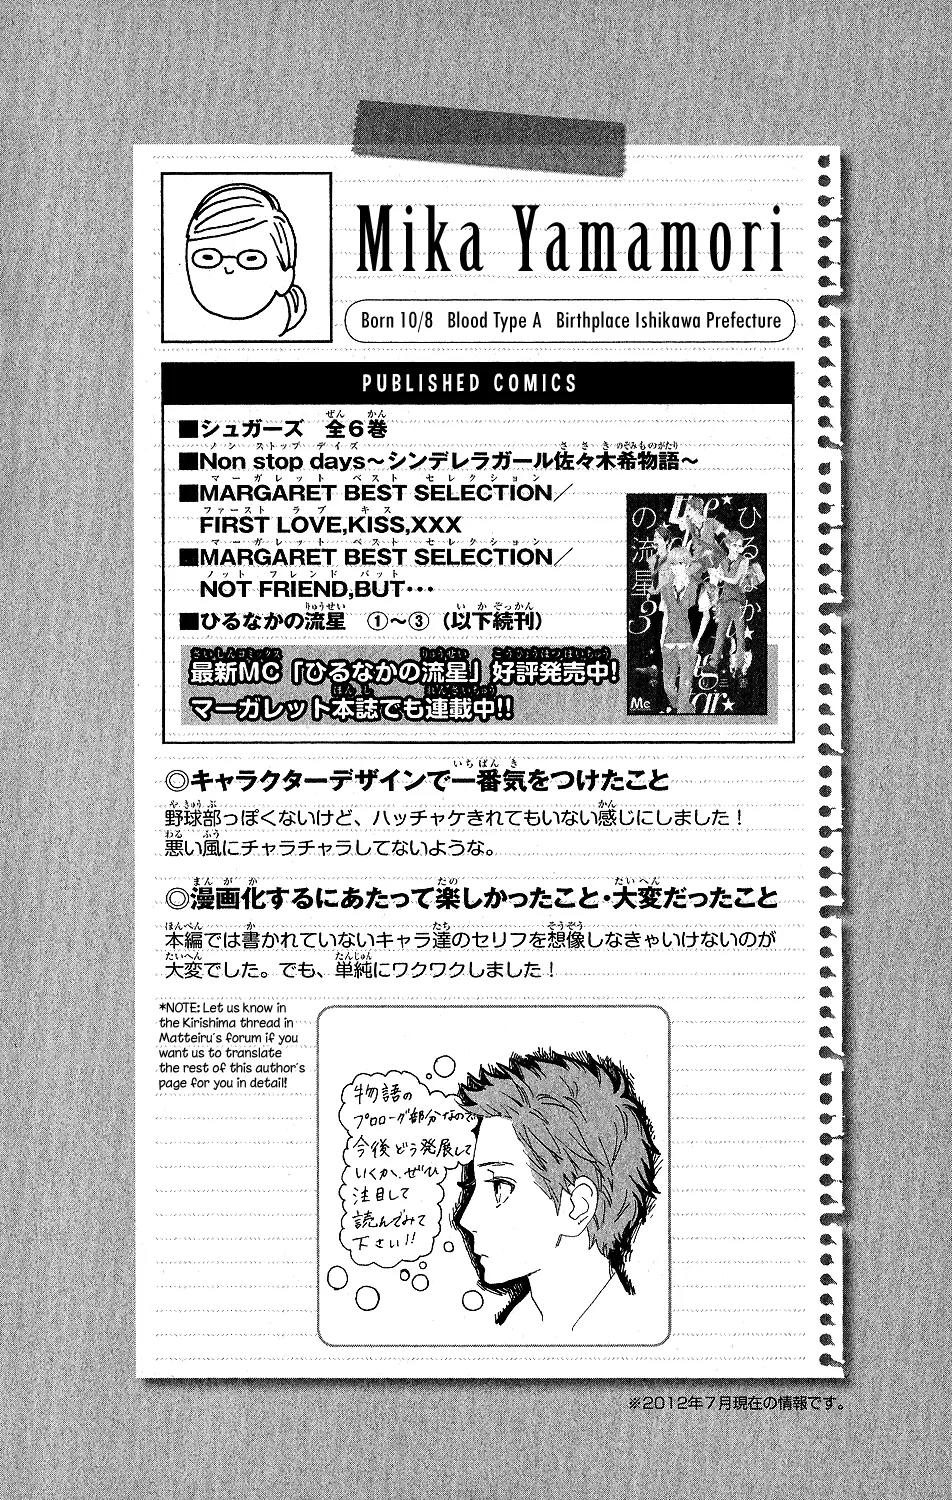 Mika Yamamori
Born 10/8 Blood Type A Birthplace Ishikawa Prefecture
PUBLISHED COMICS
■シュガーズ 全6巻
■Non stop days～シンデレラガール佐々木希物語～
■MARGARET BEST SELECTION／
FIRST LOVE,KISS,XXX
■MARGARET BEST SELECTION／
NOT FRIEND,BUT・・・
■ひるなかの流星 ①～③（以下続刊）
最新MC「ひるなかの流星」好評発売中!
マーガレット本誌でも連載中!!
ひるなか
の流星
3
Mc
◎キャラクターデザインで一番気をつけたこと
野球部っぽくないけど、ハッチャケきれてもいない感じにしました！
悪い風にチャラチャラしてないような。
◎漫画化するにあたって楽しかったこと・大変だったこと
本編では書かれていないキャラ達のセリフを想像しなきゃいけないのが
大変でした。でも、単純にワクワクしました！
*NOTE: Let us know in
the Kirishima thread in
Matteiru's forum if you
want us to translate
the rest of this author's
page for you in detail!
物語の
プロローグ部分なので
今後どう発展して
いくか、ぜひ
注目して
読んでみて
下さい!!
※2012年7月現在の情報です。